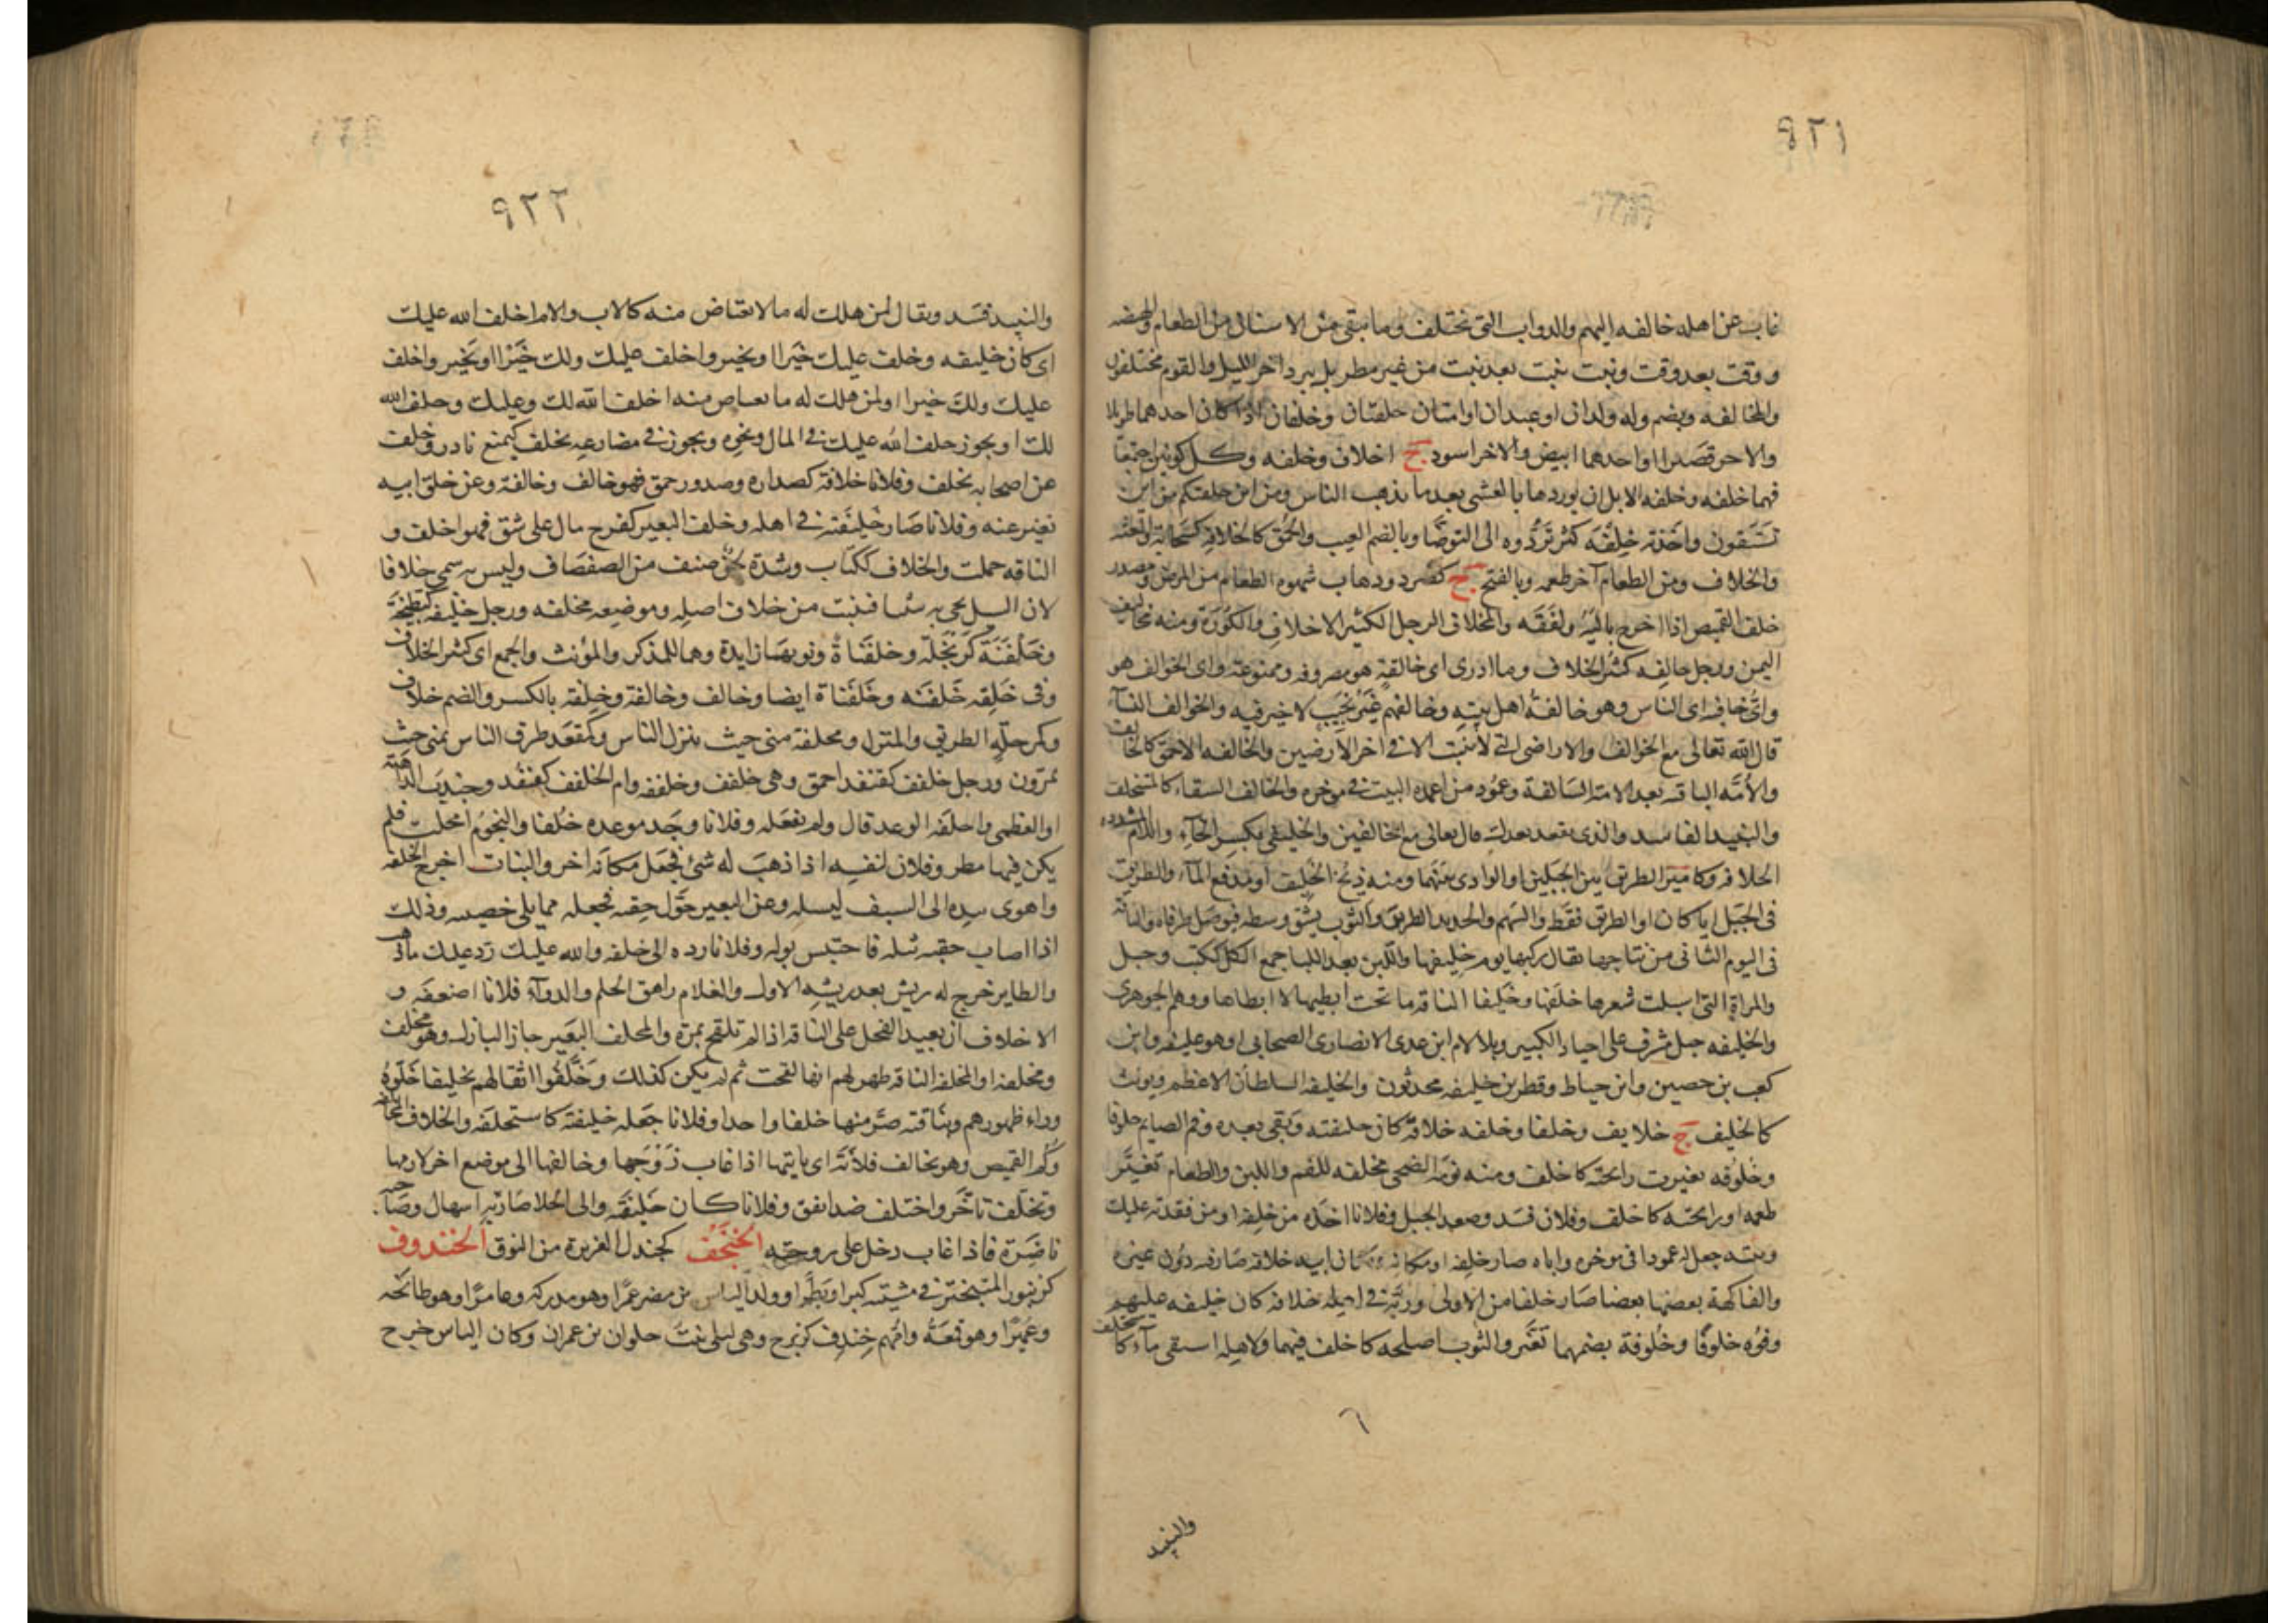 ٩٢١
غاب عن اهله خالفه اليهم والدواب التى تختلف وما يبقى بين الاسنان من الطعام والهيضه
ووقت بعد وقت ونبت ينبت بعد نبت من غير مطر بل ببرد اخر الليل والقوم مختلفون
والمخالفه ويضم وله ولدان او عبدان او امتان خلفتان وخلفان اذا كان احدهما طويلا
والاخر قصيرا او احدهما ابيض والاخر اسود ج اخلاف وخلفه وكل لونين اجتمعا
فهما خلفه وخلفه الابل ان يوردها بالعشى بعد ما يذهب الناس ومن اين خلفتكم من اين
تستقون واخذته خلفة كثر تردده الى التوضا وبالضم العيب والحمق كالخلافة كسحابة والعته
والخلاف ومن الطعام آخر طعمه وبالفتح ج كصرد وذهاب شهوه الطعام من المرض ومصدر
خلف القميص اذا اخرج باليه ولفقه والمخلاف الرجل الكثير الاخلاف والكورة ومنه مخاليف
اليمن ورجل خالفه كثير الخلاف وما ادرى اى خالفة هو مصروفه وممنوعه واى الخوالف هو
واى خافه اى الناس وهو خالفة اهل بيته وخالفهم غير نجيب لا خير فيه والخوالف النسآء
قال الله تعالى مع الخوالف والاراضى التى لا تنبت الا فى اخر الارضين والخالفه الاحمق كالخالف
والأمة الباقيه بعد الامة السالفة وعمود من اعمدة البيت فى موخره والخالف السقاء كالمستخلف
والنبيذ الفاسد والذى يقعد بعدك قال تعالى مع الخالفين والخليفى بكسر الخآء واللام المشدده
الخلافه وكامير الطريق بين الجبلين او الوادى بينهما ومنه ذيخ الخليف او مدفع المآء والطريق
فى الجبل ايا كان او الطريق فقط والسهم والحديد الطرير والثوب يشق وسطه فيوصل طرفاه والناقه
فى اليوم الثانى من نتاجها يقال ركبها يوم خليفها واللبن بعد اللبا جمع الكل ككتب وجبل
والمراة التى اسبلت شعرها خلفها وخليفا الناقه ما تحت ابطيها لا ابطاها ووهم الجوهرى
والخليفه جبل مشرف على اجياد الكبير وبلا لام ابن عدى الانصارى الصحابى او هو عليفه وابن
كعب بن حصين وابن خياط وفطر بن خليفه محدثون والخليفه السلطان الاعظم ويونث
كالخليف ج خلايف وخلفا وخلفه خلافة كان خليفته وبقى بعده وفم الصايم خلوفا
وخلوفه تغيرت رائحته كاخلف ومنه نومة الضحى مخلفه للفم واللبن والطعام تغير
طعمه او رائحته كاخلف وفلان فسد وصعد الجبل وفلانا اخذه من خلفه او من فقدته عليك
وبيته جعل له عمودا فى موخره واباه صار خلفه او مكانه ابيه خلافه صار فيه دون غيره
والفاكهة بعضها بعضا صارت خلفا من الاولى وربه فى اهله خلافه كان خليفه عليهم
وفوه خلوفا وخلوفة بضمهما تغير والثوب اصلحه كاخلف فيهما ولاهله استقى مآء كاستخلف
٦
والنبيذ
٩٢٢
والنبيذ فسد ويقال لمن هلك له ما لا يعتاض منه كالاب والام اخلف الله عليك
اى كان خليفه وخلف عليك خيرا او بخير واخلف عليك ولك خيرا او بخير واخلف
عليك ولك خيرا ولمن هلك له ما يعتاض منه اخلف الله لك وعليك وخلف الله
لك او يجوز خلف الله عليك فى المال ونحوه ويجوز فى مضارعه يخلف كيمنع نادر وخلف
عن اصحابه تخلف وفلانا خلافة كصداره وصدور حمق فهو خالف وخالفة وعن خلق ابيه
تغير عنه وفلانا صار خليفته فى اهله وخلف البعير كفرح مال على شق فهو اخلف و
الناقه حملت والخلاف ككتاب وشدة لحن صنف من الصفصاف وليس به سمى خلافا
لان السيل يجى به سبيا فينبت من خلاف اصله وموضعه مخلفه ورجل خليفة كبطيخة
وخلفنة كربحلة وخلفناة ونونهما زايدة وهما للمذكر والمؤنث والجمع اى كثير الخلاف
وفى خلقه خلفنه وخلفناة ايضا وخالف وخالفة وخلفة بالكسر والضم خلاف
وكمرحلة الطريق والمنزل ومخلفة منى حيث ينزل الناس وكمقعد طرق الناس بمنى حيث
يمرون ورجل خلفف كقنفد احمق وهى خلفف وخلففه وام الخلفف كقنفد وجندب الداهية
او العظمى واخلفه الوعد قال ولم يفعله وفلانا وجد موعده خلفا والنجوم امحلت فلم
يكن فيها مطر وفلان لنفسه اذا ذهب له شئ فجعل مكانه اخر والنبات اخرج الخلفه
واهوى بيده الى السيف ليسله وعن البعير حول حقبه فجعله مما يلى خصييه وذلك
اذا اصاب حقبه ثيله فاحتبس بوله وفلانا رده الى خلفه والله عليك رد عليك ما ذهب
والطاير خرج له ريش بعد ريشه الاول والغلام راهق الحلم والدوآء فلانا اضعفه و
الاخلاف ان يعيد الفحل على الناقه اذا لم تلقح بمرة والمخلف البعير جاز البازل وهو مخلف
ومخلفه او المخلفه الناقه ظهر لهم انها لقحت ثم لم يكن كذلك وخلفوا اثقالهم تخليفا خلوه
وراء ظهورهم وبناقته صر منها خلفا واحدا وفلانا جعله خليفته كاستخلفه والخلاف المخالفه
وكم القميص وهو يخالف فلانة اى ياتيها اذا غاب زوجها وخالفها الى موضع اخر لازمها
وتخلف تاخر واختلف ضد اتفق وفلانا كان خليفته والى الخلا صار به اسهال وصاحبه
ناضره فاذا غاب دخل على زوجته الخنجف كجندل الغزيرة من النوق الخندوف
كزنبور المتبختر فى مشيته كبرا وبطرا وولد الياس بن مضر عمرا وهو مدركه وعامرا وهو طابخه
وعميرا وهو قمعة وامهم خندف كزبرج وهى ليلى بنت حلوان بن عمران وكان الياس خرج